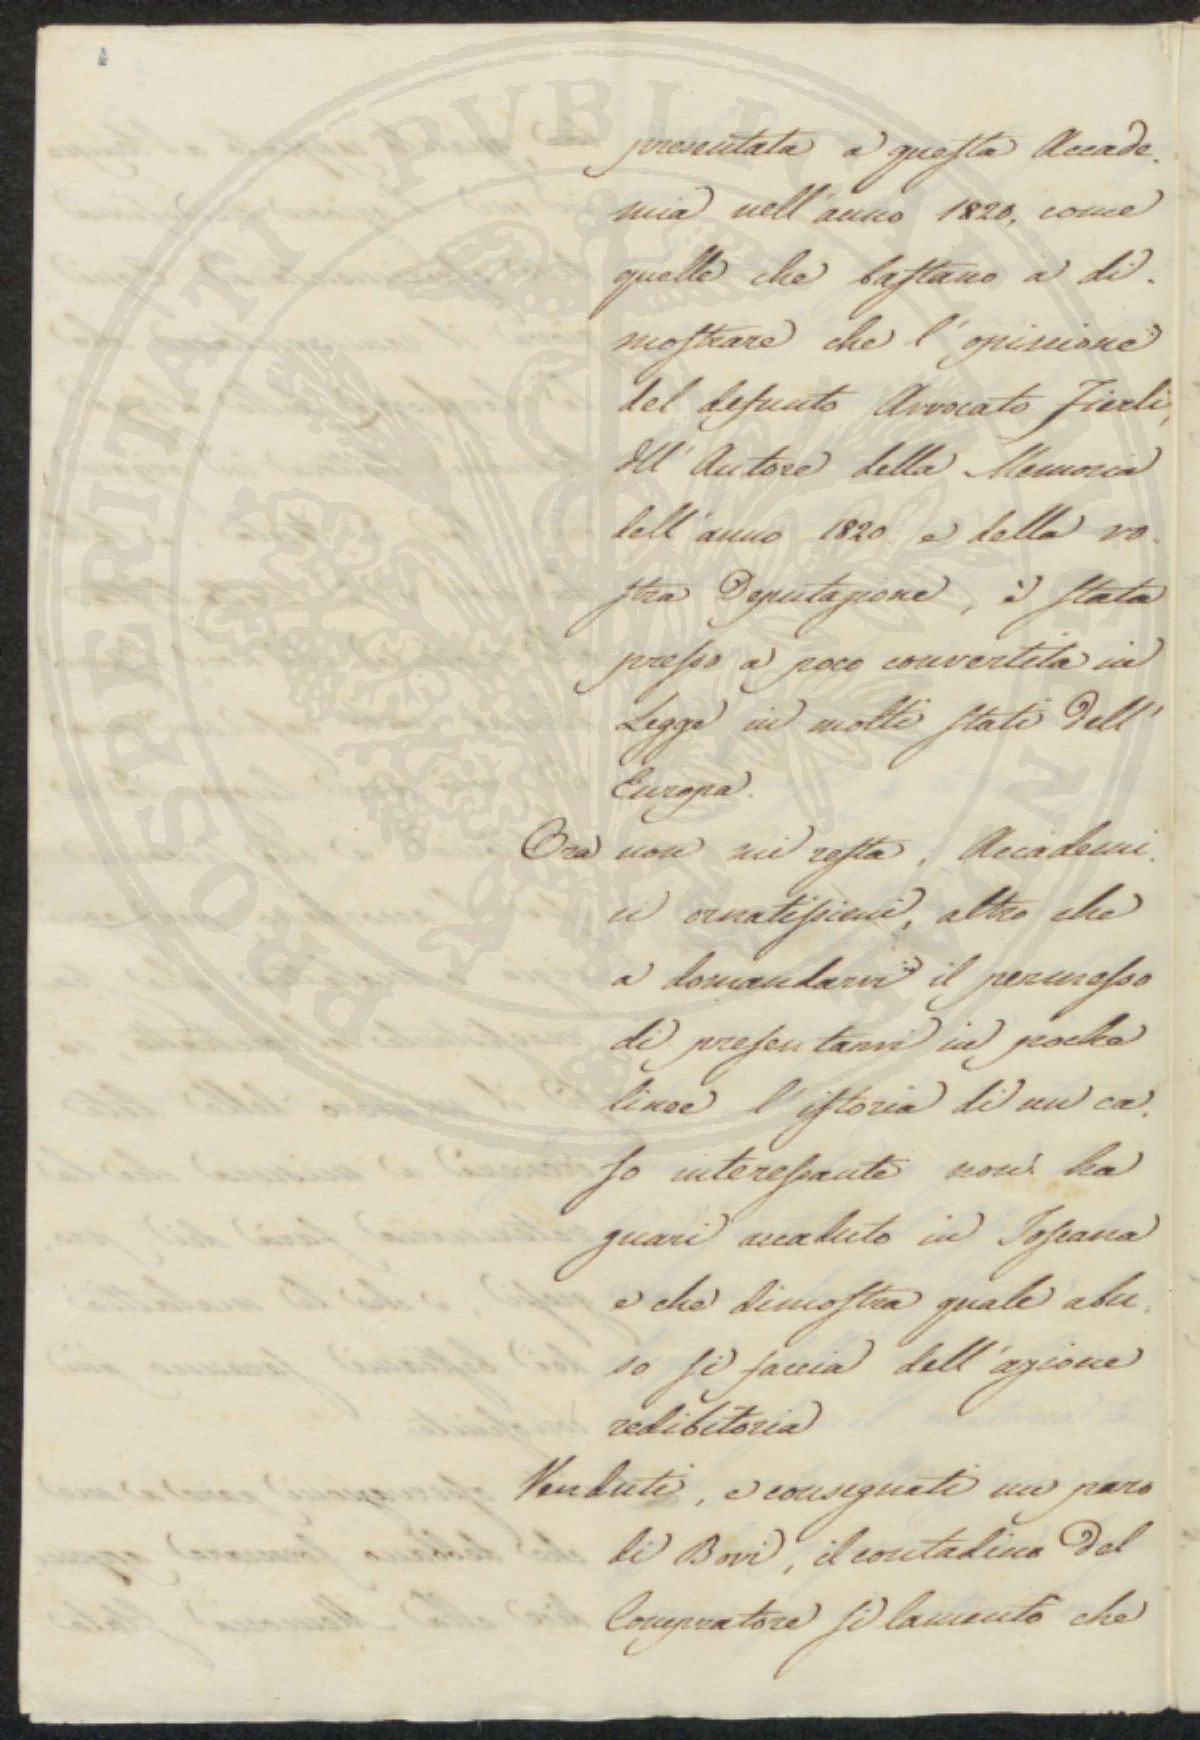 presentata a questa Accade.
mia nell'anno 1820, come
quelle che bastano a di.
mostrare che l'opinione
del defunto Avvocato Fierli,
dell'Autore della Memoria
dell'anno 1820 e della vo.
stra Deputazione, è stata
presso a poco convertita in
Legge in molti stati dell'
Europa.
Ora non mi resta, Accademi.
ci ornatissimi, altro che
a domandarvi il permesso
di presentarvi in poche
linee l'istoria di un ca.
so interessante non ha
guari accaduto in Toscana
e che dimostra quale abu.
so si faccia dell'azione
redibitoria
Venduti, e consegnati un paro
di Bovi, il contadino del
Compratore si lamentò che
PROSPERITATI PUBLICAE